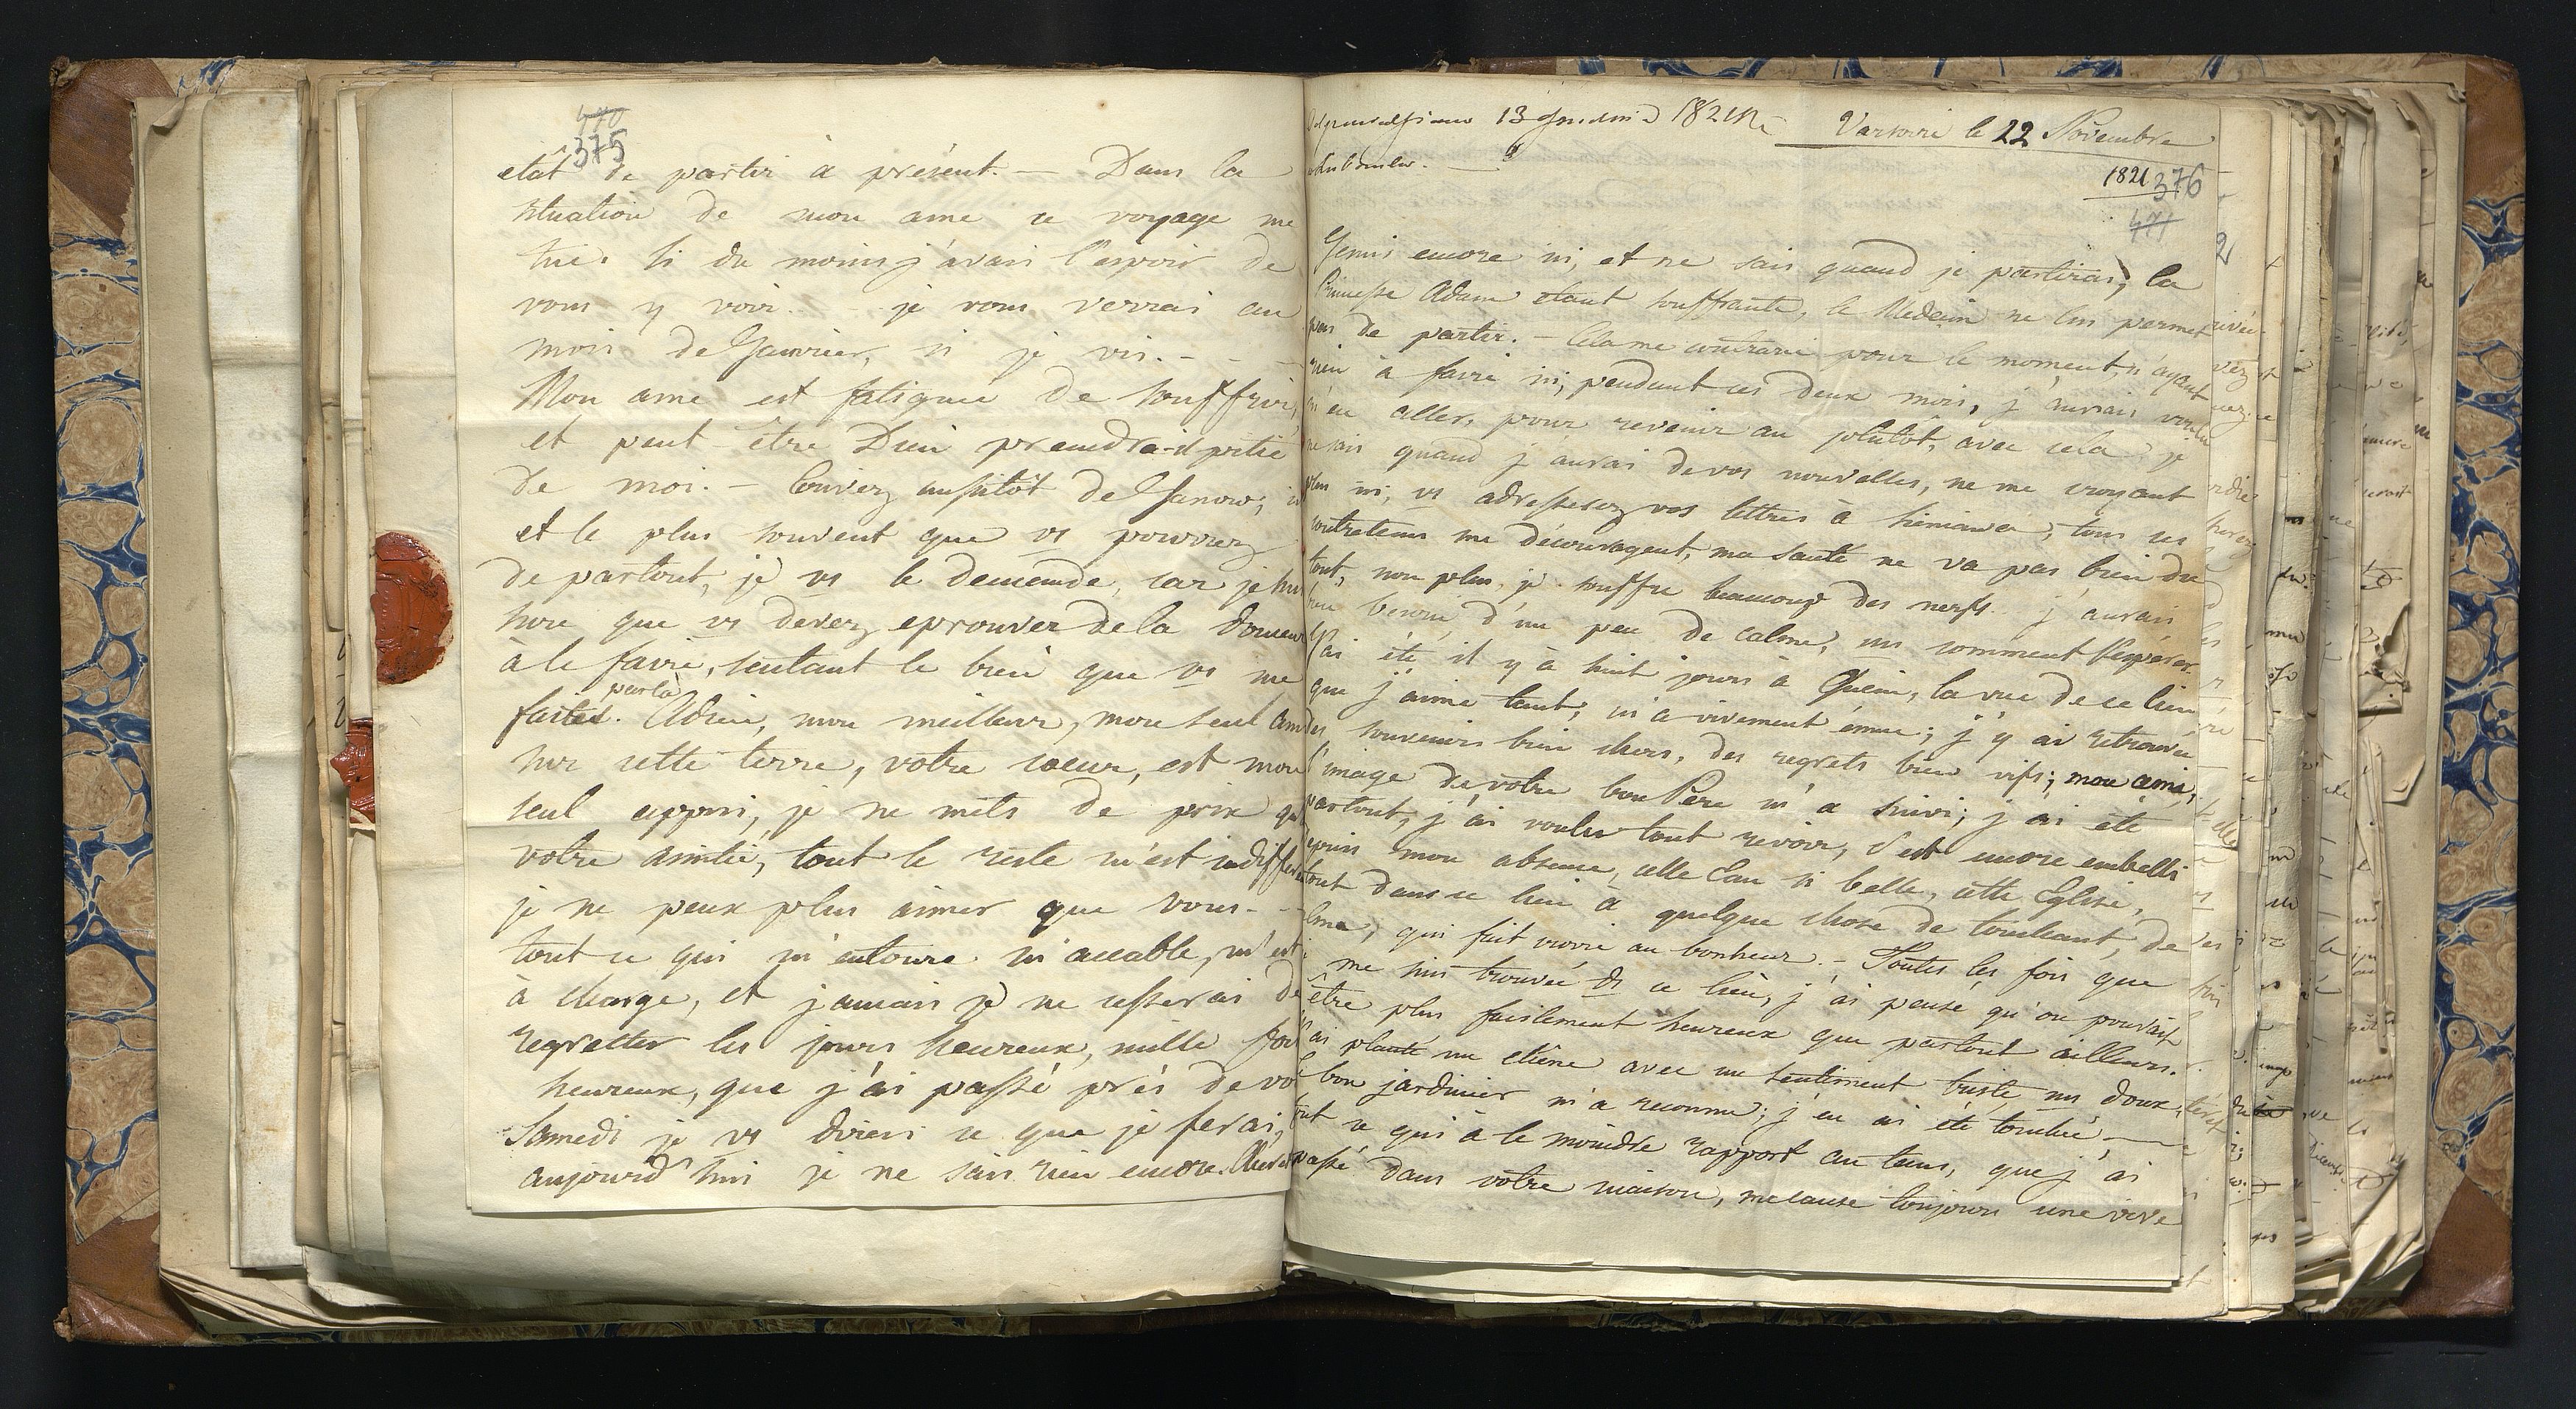 470
375
etât de partir à présent. — Dans la
situation de mon ame ce voyage me
tue. Si du moins j'avais l'espoir de
vous y voir. - je vous verrai au
mois de Janvier, si je vis. - - -
Mon ame est fatiguée de souffrir,
et peut-être Dieu prendra-il pitié
de moi. — Ecrivez aussitôt de Janow,
et le plus souvent que vs pourrez
de partout, je vs le demande, car je suis
sure que vs devez eprouver de la douceur
à le faire, sentant le bien que vs me
par là
faites. Adieu, mon meilleur, mon seul ami
sur cette terre, votre coeur, est mon
seul appui, je ne mets de prix qu'
votre amitié, tout le reste m'est indifferent
je ne peux plus aimer que vous. - -
tout ce qui m'entoure m'accable, m'est
à charge, et jamais je ne cesserai de
regretter les jours heureux, mille fois
heureux, que j'ai passé près de vo
Samedi je vs dirai ce que je ferai,
aujourd'hui je ne sais rien encore.
13 1821
Varsovie le 22 Novembre
1821
376
471
Je suis encore ici, et ne sais quand je partirai, la
Princesse Adam etant souffrante, le Medecin ne lui permet
pas de partir. - Cela me contrarie pour le moment, n'ayant
rien à faire ici, pendant ces deux mois, j'aurais voulu
m'en aller, pour revenir au plutôt, avec cela je
ne sais quand j'aurai de vos nouvelles, ne me croyant
plus ici, vs adresserez vos lettres à Sieniawa, tous ces
contretems me découragent, ma santé ne va pas bien du
tout, non plus, je souffre beaucoup des nerfs - j'aurais
bien besoin d'un peu de calme, mais comment l'espérer
J'ai été il y à huit jours à, la vue de ce lieu
que j'aime tant, m'a vivement émue; j'y ai retrouvé
des souvenirs bien chers, des regrets bien vifs; mon ami,
l'image de votre bon Père m'a suivi; j'ai été
partout, j'ai voulu tout revoir, c'est encore embelli
depuis mon absence, cette Eau si belle, cette Eglise,
tout dans ce lieu à quelque chose de touchant, de
calme, qui fait croire au bonheur. - Toutes les fois que
je me suis trouvée ds ce lieu, j'ai pensé qu'on pouvait
être plus facilement heureux que partout ailleurs.
J'ai planté un chêne avec un sentiment triste, mais doux,
le bon jardinier m'a reconnu; j'en ai été touchée, —
tout ce qui à le moindre rapport au tems, que j'ai
passé dans votre maison, me cause toujours une vive